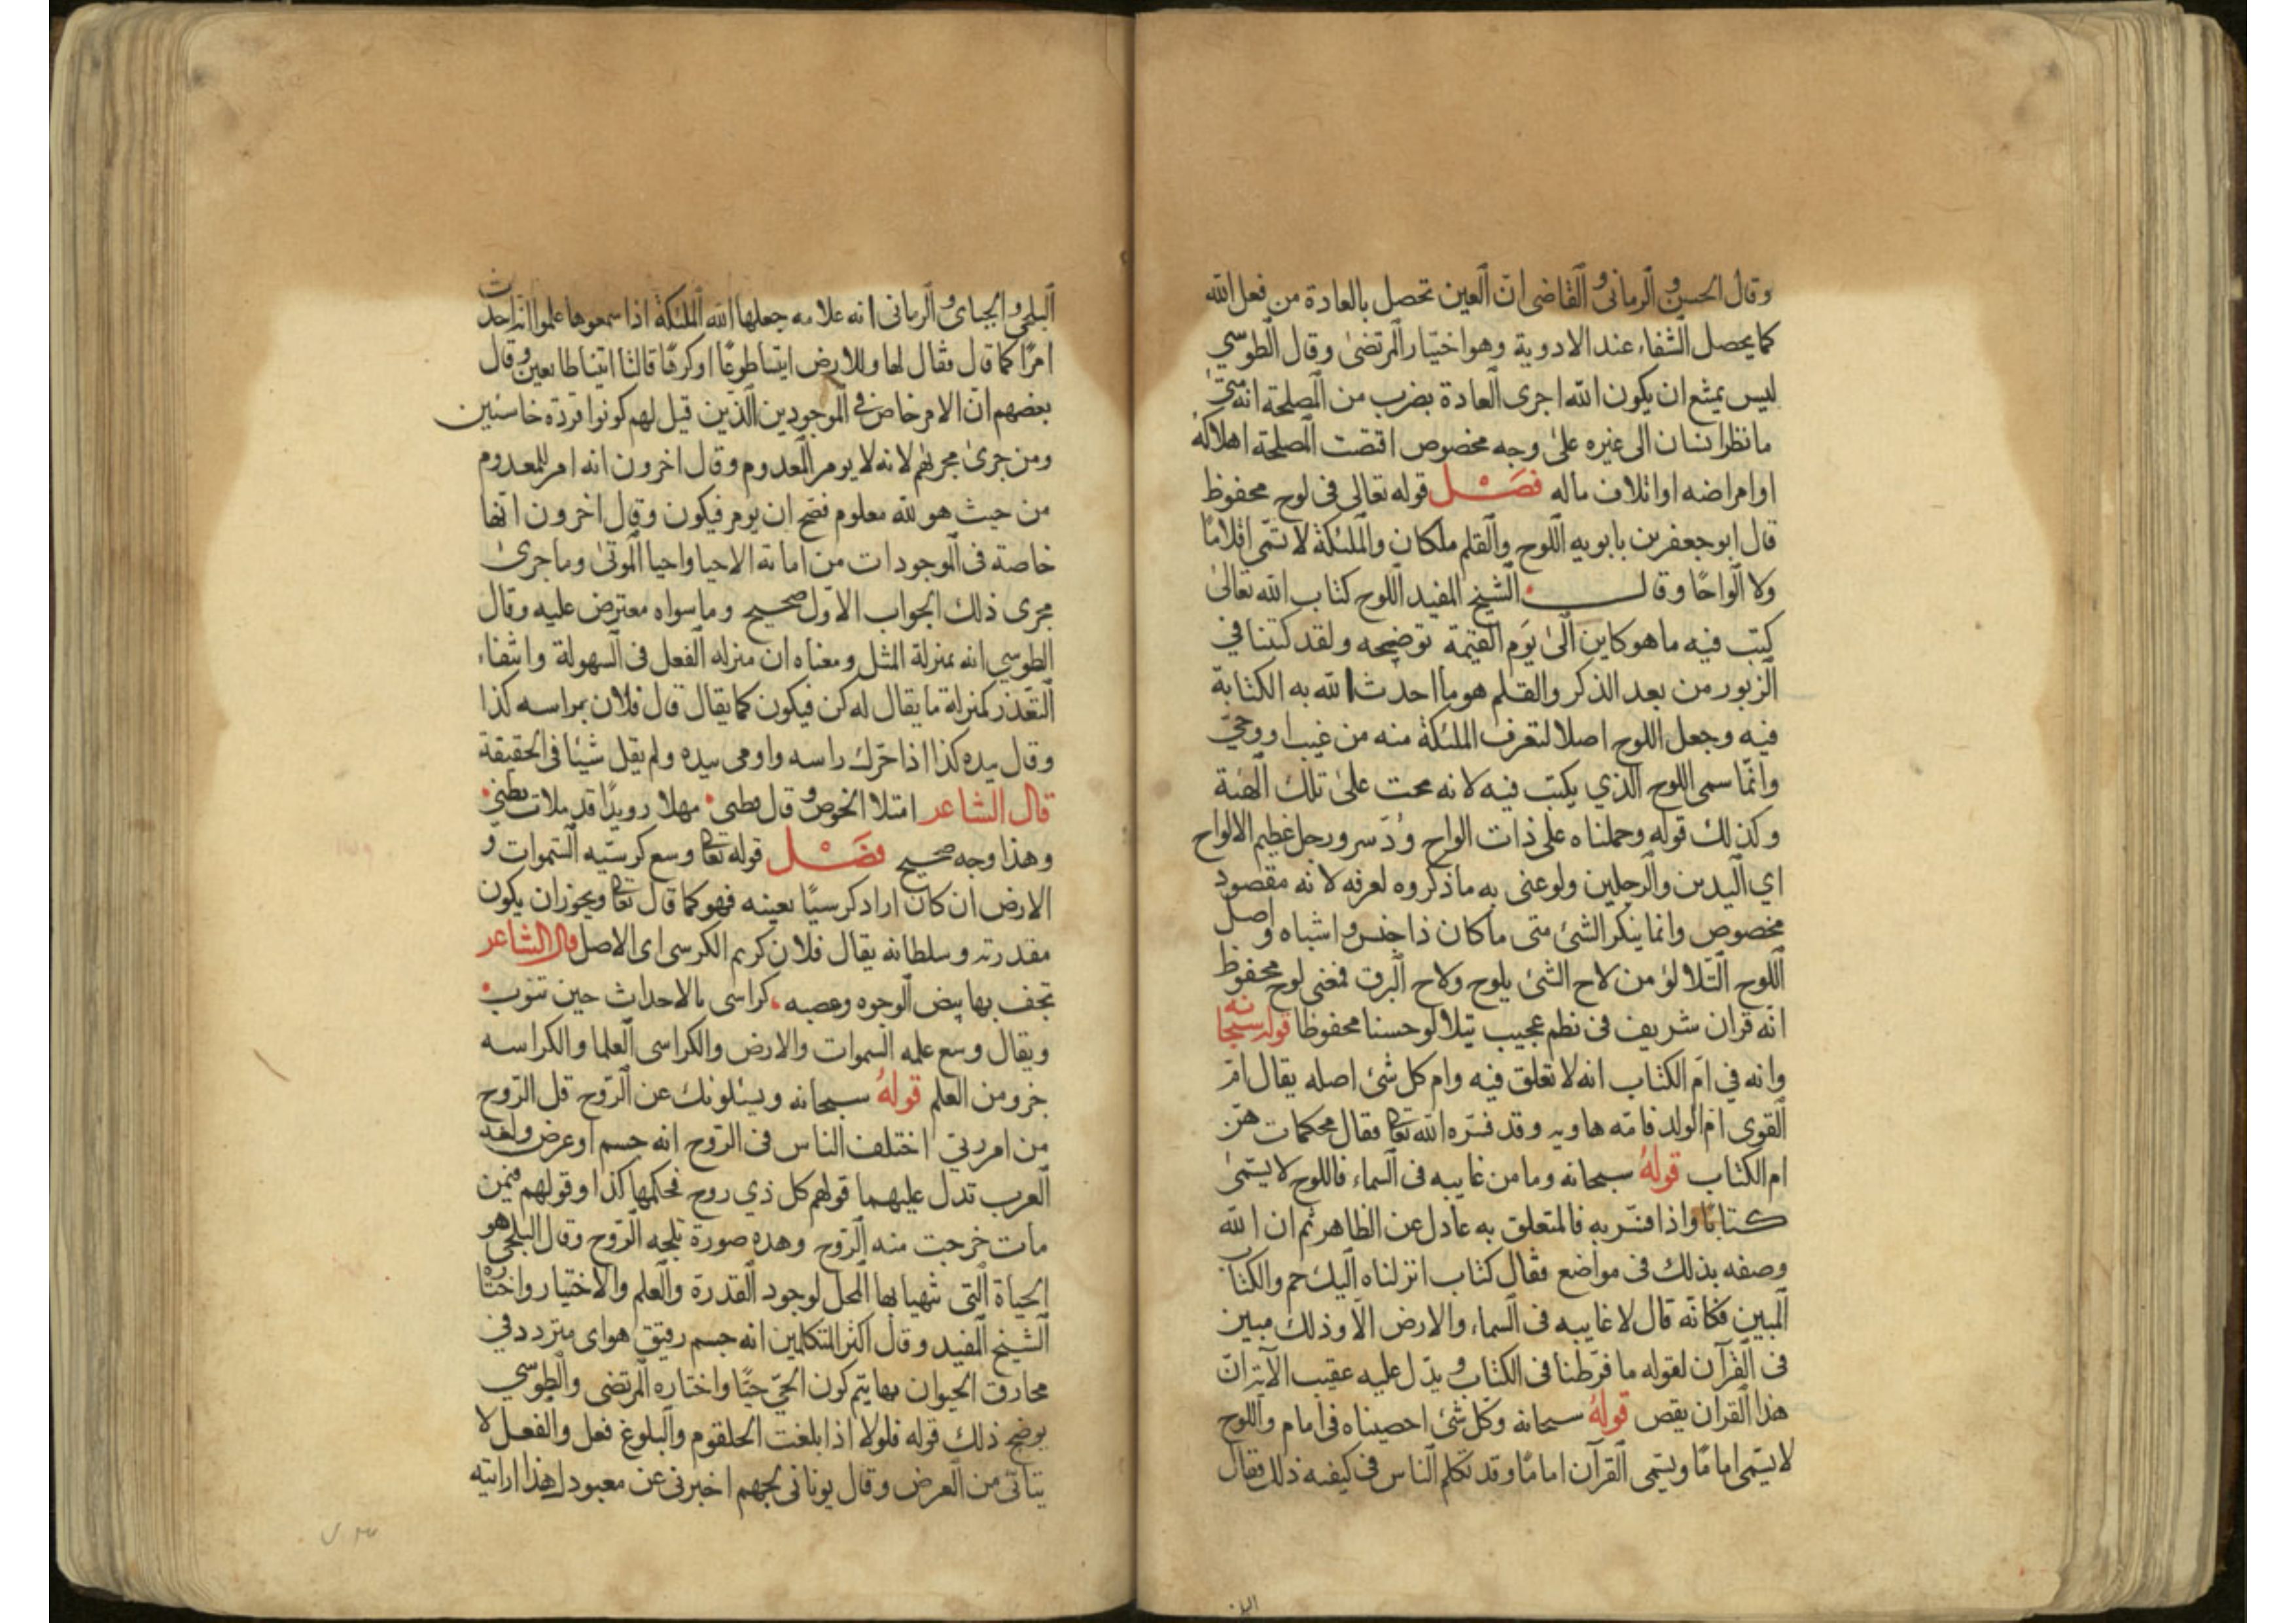 وقال الحسن والرماني والقاضي ان العين تحصل بالعادة من فعل الله
كما يحصل الشفاء عند الادوية وهو اختيار المرتضى وقال الطوسي
ليس يمتنع ان يكون الله اجرى العادة بضرب من المصلحة انه متى
ما نظر انسان الى غيره على وجه مخصوص اقتضت المصلحة اهلاكه
او امراضه او اتلاف ماله فصل قوله تعالى فى لوح محفوظ
قال ابو جعفر بن بابويه اللوح والقلم ملكان والملئكة لا تسمى اقلاما
ولا الواحا وقال الشيخ المفيد اللوح كتاب الله تعالى
كتب فيه ما هو كاين الى يوم القيمة توضيحه ولقد كتبنا في
الزبور من بعد الذكر والقلم هو ما احدث الله به الكتابة
فيه وجعل اللوح اصلا لتعرف الملئكة منه من غيب او وحي
وانما سمى اللوح الذي يكتب فيه لانه نحت على تلك الهئة
وكذلك قوله وحملناه على ذات الواح ودسر ورجل عظيم الالواح
اي اليدين والرجلين ولو عنى به ما ذكروه لعرفه لانه مقصود
مخصوص وانما ينكر الشئ متى ما كان ذا جنس واشباه واصل
اللوح التلالؤ من لاح الشئ يلوح ولاح البرق فمعنى لوح محفوظ
انه قران شريف فى نظم عجيب يتلالو حسنا محفوظا قوله سبحانه
وانه في ام الكتاب انه لا تعلق فيه وام كل شئ اصله يقال ام
القوى ام الولد فامه هاويه وقد فسره الله تعا فقال محكمات هن
ام الكتاب قوله سبحانه وما من غايبه فى السماء فاللوح لا يسمى
كتابا واذا فسر به فالمتعلق به عادل عن الظاهر ثم ان الله
وصفه بذلك فى مواضع فقال كتاب انزلناه اليك حم والكتاب
المبين فكانه قال لا غايبه فى السماء والارض الا وذلك مبين
فى القرآن لقوله ما فرطنا فى الكتاب ويدل عليه عقيب الآية ان
هذا القران يقص قوله سبحانه وكل شئ احصيناه فى امام واللوح
لا يسمى اماما ويسمى القرآن اماما وقد تكلم الناس فى كيفيه ذلك فقال
البلخي والجباى والرمانى انه علامه جعلها الله الملئكة اذا سمعوها علموا انه احدث
امرا كما قال فقال لها وللارض ايتيا طوعا او كرها قالتا اتينا طايعين وقال
بعضهم ان الامر خاص فى الموجودين الذين قيل لهم كونوا قردة خاسئين
ومن جرى مجراهم لانه لا يومر المعدوم وقال اخرون انه امر للمعدوم
من حيث هو لله معلوم فصح ان يومر فيكون وقال اخرون انها
خاصة فى الموجودات من اماته الاحيا واحيا الموتى وما جرى
مجرى ذلك الجواب الاول صحيح وما سواه معترض عليه وقال
الطوسي انه بمنزلة المثل ومعناه ان منزله الفعل فى السهولة وانتفاء
التعذر كمنزلة ما يقال له كن فيكون كما يقال قال فلان براسه كذا
وقال بيده كذا اذا حرك راسه واومى بيده ولم يقل شيئا فى الحقيقة
قال الشاعر امتلا الحوض وقال قطنى مهلا رويدا قد ملات بطني
وهذا وجه صحيح فصل قوله تعا وسع كرسيه السموات و
الارض ان كان اراد كرسيا بعينه فهو كما قال تعا ويجوز ان يكون
مقدرته وسلطانه يقال فلان كريم الكرسى اى الاصل قال الشاعر
تحف بها بيض الوجوه وعصبه كراسى بالاحداث حين تنوب
ويقال وسع علمه السموات والارض والكراسى العلما والكراسه
جزو من العلم قوله سبحانه ويسئلونك عن الروح قل الروح
من امر ربي اختلف الناس فى الروح انه جسم او عرض ولغه
العرب تدل عليهما قولهم كل ذي روح فحكمها كذا وقولهم فيمن
مات خرجت منه الروح وهذه صورة تلجه الروح وقال البلخي هو
الحياة التى تتهيا بها المحل لوجود القدرة والعلم والاختيار واختاره
الشيخ المفيد وقال اكثر المتكلمين انه جسم رقيق هواى متردد في
مخارق الحيوان بها يتم كون الحي حيا واختاره المرتضى والطوسي
يوضح ذلك قوله فلولا اذا بلغت الحلقوم والبلوغ فعل والفعل لا
يتاتى من العرض وقال يونانى لجهم اخبرنى عن معبودك هذا ارايته